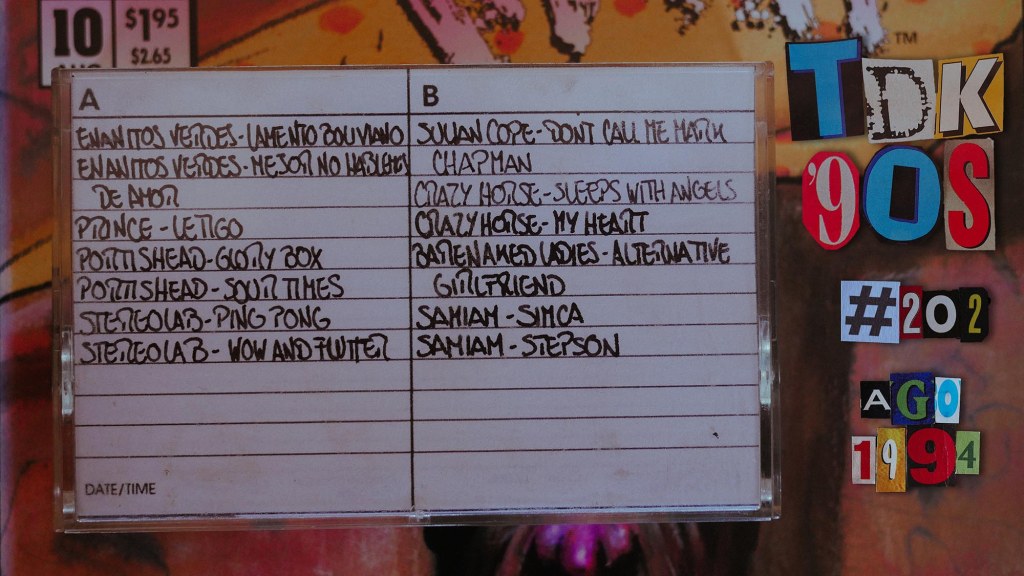 10
$1.95
$2.65
AUG
TM
TDK
'90S
#202
AGO
1994
A
ENANITOS VERDES - LAMENTO BOLIVIANO
ENANITOS VERDES - MEJOR NO HABLEMOS
DE AMOR
PRINCE - LETIGO
PORTISHEAD - GLORY BOX
PORTISHEAD - SOUR TIMES
STEREOLAB - PING PONG
STEREOLAB - WOW AND FLUTTER
DATE/TIME
B
JULIAN COPE - DON'T CALL ME MARK
CHAPMAN
CRAZY HORSE - SLEEPS WITH ANGELS
CRAZY HORSE - MY HEART
BARENAKED LADIES - ALTERNATIVE
GIRLFRIEND
SAMIAM - SIMCA
SAMIAM - STEPSON